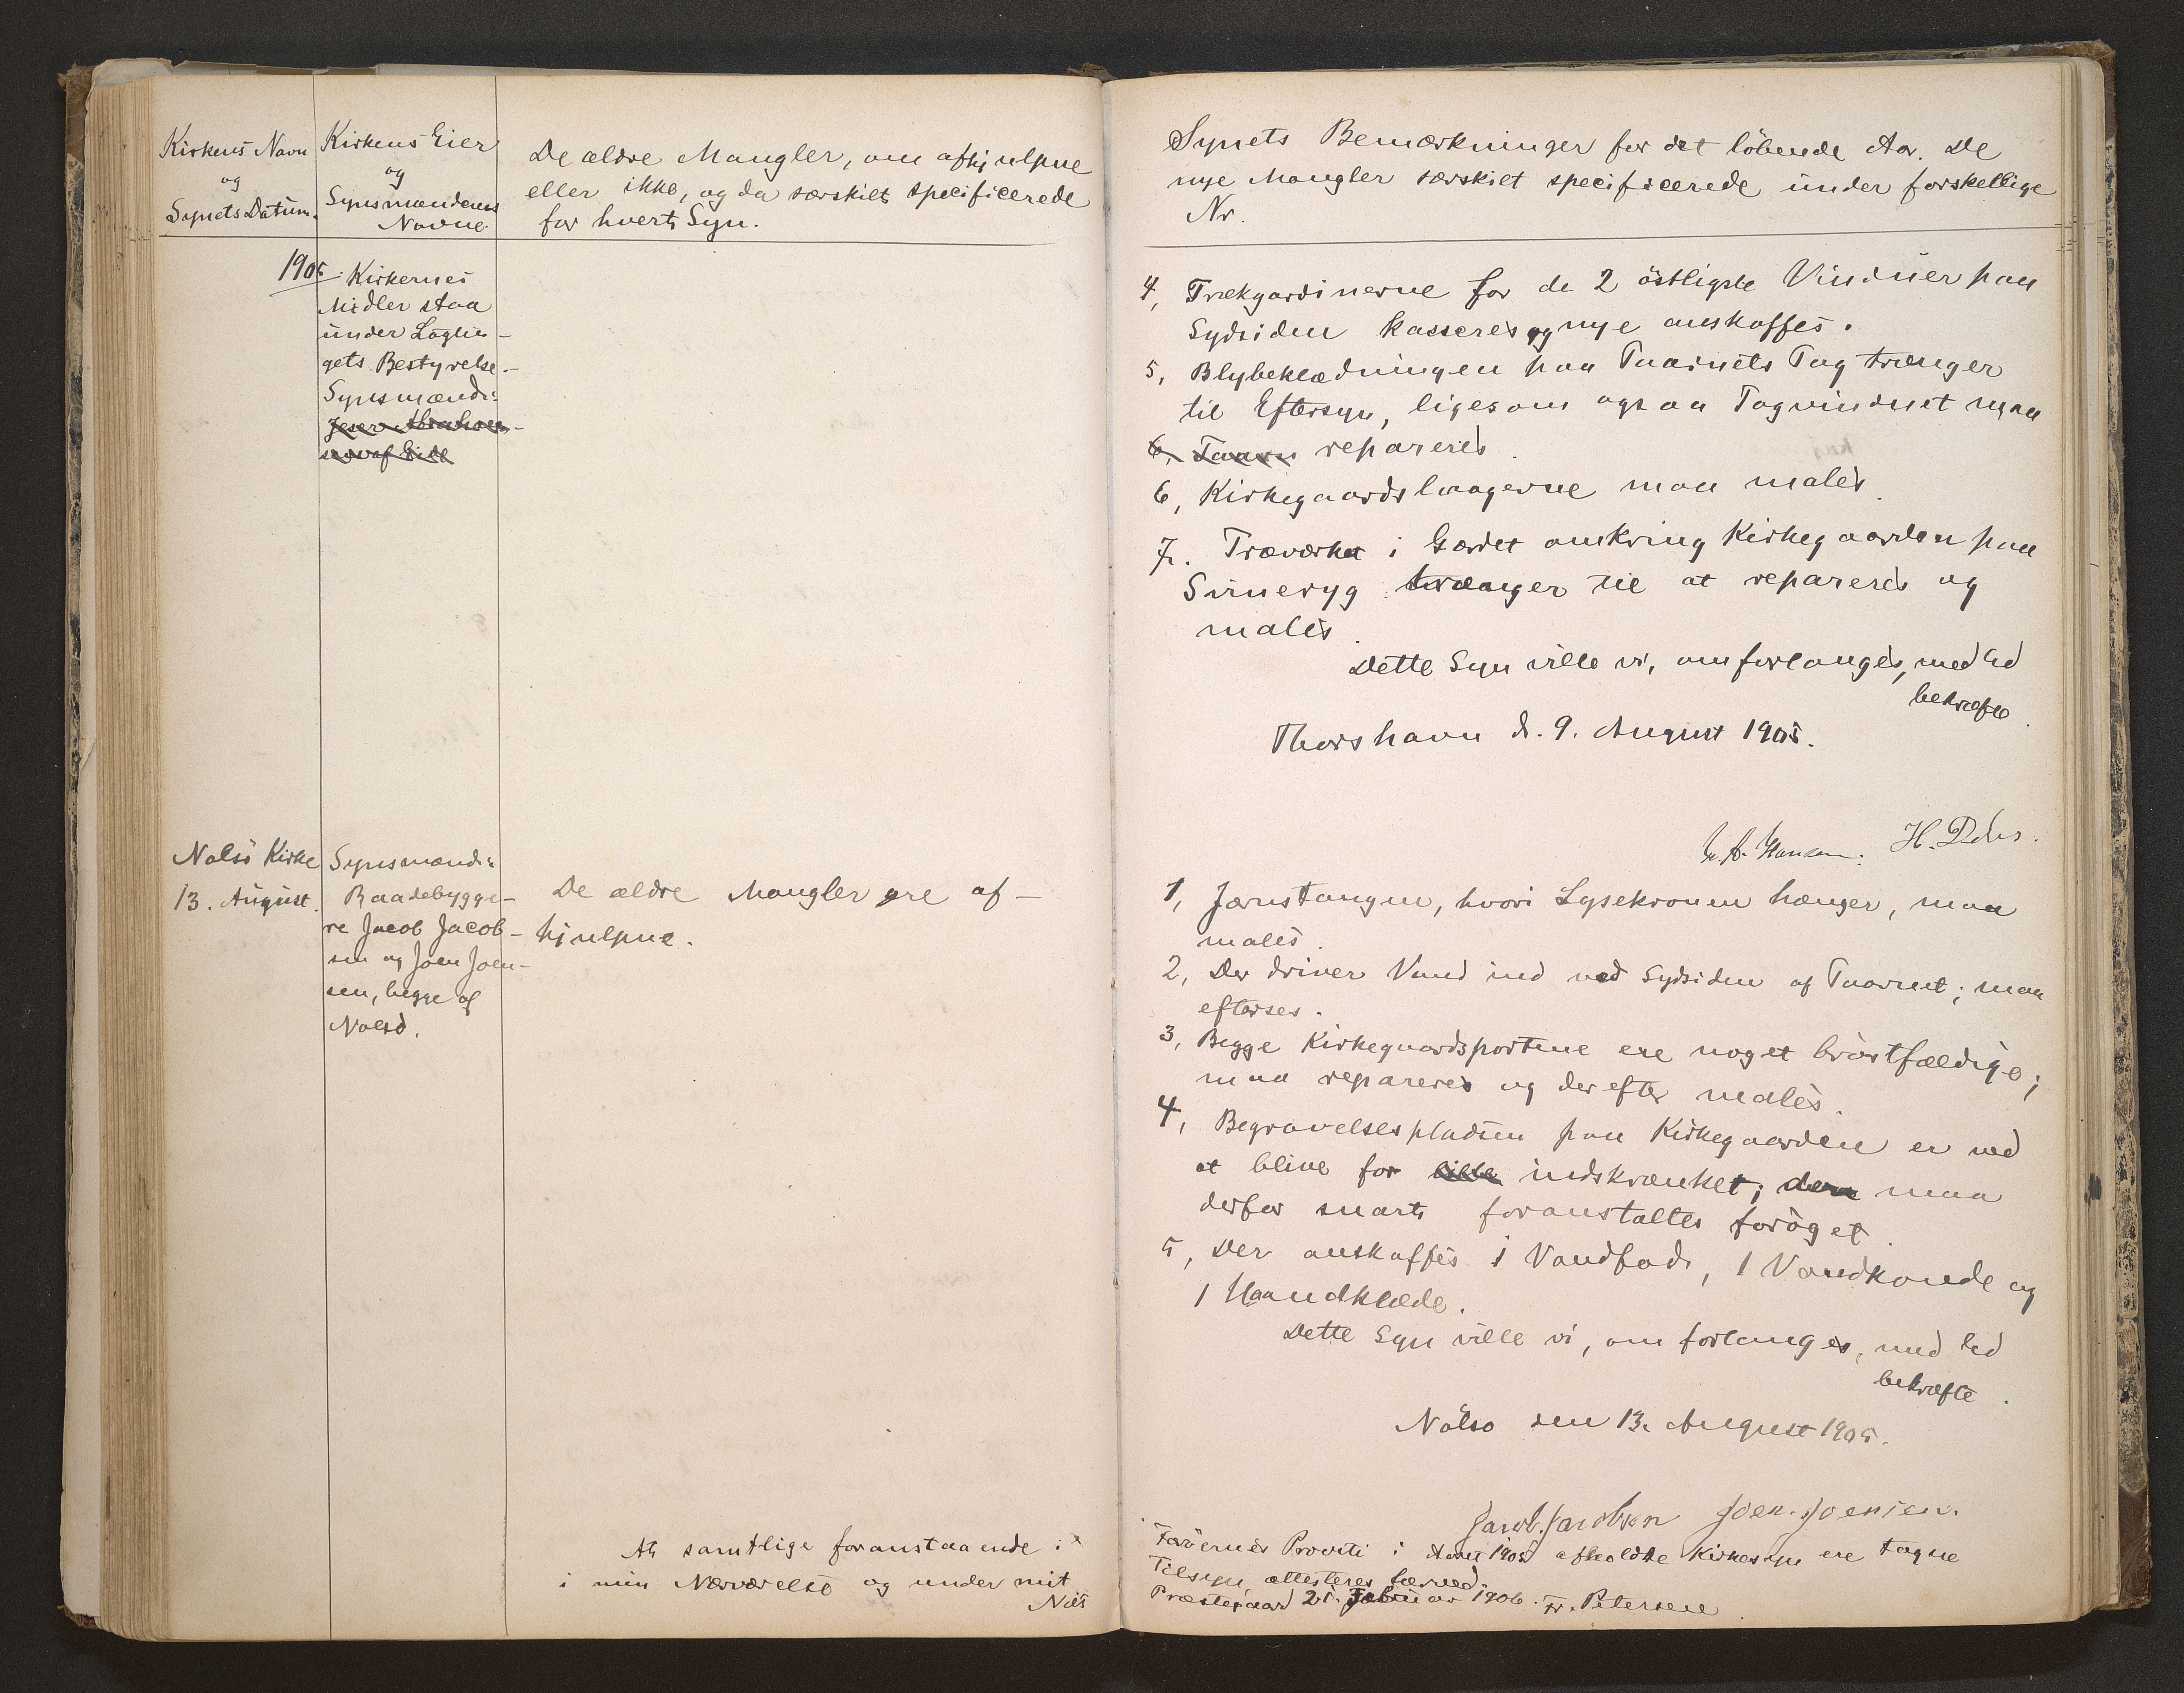 Kirkens Navn
og
Synets Datum.
Kirkens Eier
og
Synsmændenes
Navne
De ældre Mangler, om afhjulpne
eller ikke, og da særskilt specificerede
for hvert Syn.
1905.
Kirkernes
Midler staa
under Lagtin-
gets Bestyrelse.-
Synsmænd:
Nolsö Kirke
13. August.
Synsmænd:
Baadebygge-
re Jacob Jacob-
sen og Joen Joen-
sen, begge af
Nolsö.
De ældre Mangler ere af-
hjulpne.
At samtlige foranstaaende i
i min Nærværelse og under mit
Synets Bemærkninger for det löbende Aar. De
nye Mangler særskilt specificerede under forskellige
Nr.
4, Trækgardinerne for de 2 östligste Vinduer paa
Sydsiden kasseres og nye anskaffes.
5, Blybeklædningen paa Taarnets Tag trænger
til Eftersyn, ligesom ogsaa Tagvinduet maa
6, Taarn repareres.
6, Kirkegaardslaagerne maa males.
7. Træværket i Gærdet omkring Kirkegaarden paa
Svineryg trænger til at repareres og
males.
Dette Syn ville vi, om forlanges, med Ed
bekræfte.
Thorshavn d. 9. August 1905.
H. Debes.
1, Jærnstangen, hvori Lysekronen hænger, maa
males.
2, Der driver Vand ind ved Sydsiden af Taarnet; maa
efterses.
3, Begge Kirkegaardsportene ere noget bröstfældige;
maa repareres og derefter males.
4, Begravelsespladsen paa Kirkegaarden er ved
at blive for lille indskrænket; den maa
derfor snart foranstaltes foröget.
5, Der anskaffes 1 Vandfad, 1 Vandkande og
1 Haandklæde.
Dette Syn ville vi, om forlanges, med Ed
bekræfte.
Nolsö den 13. August 1905.
Jacob. Jacobsen Joen. Joensen.
Færöernes Provsti i Aaret 1905 afholdte Kirkesyn ere tagne
Tilsyn, attesteres herved.
Præstegaard 21. Februar 1906. Fr. Petersen